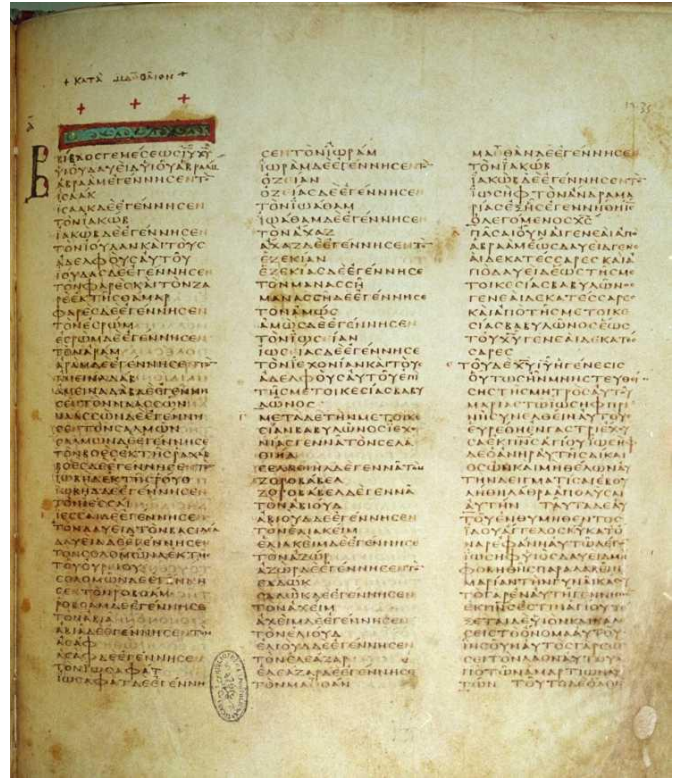 + ΚΑΤΑ ΜΑΘΘΑΙΟΝ +
ΒΙΒΛΟΣ ΓΕΝΕΣΕΩΣ ΙΥ ΧΥ
ΥΙΟΥ ΔΑΥΕΙΔ ΥΙΟΥ ΑΒΡΑΑΜ
ΑΒΡΑΑΜ ΕΓΕΝΝΗΣΕΝ ΤΟΝ
ΙΣΑΑΚ
ΙΣΑΑΚ ΔΕ ΕΓΕΝΝΗΣΕΝ
ΤΟΝ ΙΑΚΩΒ
ΙΑΚΩΒ ΔΕ ΕΓΕΝΝΗΣΕΝ
ΤΟΝ ΙΟΥΔΑΝ ΚΑΙ ΤΟΥΣ
ΑΔΕΛΦΟΥΣ ΑΥΤΟΥ
ΙΟΥΔΑΣ ΔΕ ΕΓΕΝΝΗΣΕΝ
ΤΟΝ ΦΑΡΕΣ ΚΑΙ ΤΟΝ ΖΑ
ΡΕ ΕΚ ΤΗΣ ΘΑΜΑΡ
ΦΑΡΕΣ ΔΕ ΕΓΕΝΝΗΣΕΝ
ΤΟΝ ΕΣΡΩΜ
ΕΣΡΩΜ ΔΕ ΕΓΕΝΝΗΣΕΝ
ΤΟΝ ΑΡΑΜ
ΑΡΑΜ ΔΕ ΕΓΕΝΝΗΣΕΝ ΤΟΝ
ΑΜΕΙΝΑΔΑΒ
ΑΜΕΙΝΑΔΑΒ ΔΕ ΕΓΕΝΝΗ
ΣΕΝ ΤΟΝ ΝΑΑΣΣΩΝ
ΝΑΑΣΣΩΝ ΔΕ ΕΓΕΝΝΗ
ΣΕΝ ΤΟΝ ΣΑΛΜΩΝ
ΣΑΛΜΩΝ ΔΕ ΕΓΕΝΝΗΣΕ
ΤΟΝ ΒΟΕΣ ΕΚ ΤΗΣ ΡΑΧΑΒ
ΒΟΕΣ ΔΕ ΕΓΕΝΝΗΣΕΝ ΤΟΝ
ΙΩΒΗΔ ΕΚ ΤΗΣ ΡΟΥΘ
ΙΩΒΗΔ ΔΕ ΕΓΕΝΝΗΣΕΝ
ΤΟΝ ΙΕΣΣΑΙ
ΙΕΣΣΑΙ ΔΕ ΕΓΕΝΝΗΣΕΝ
ΤΟΝ ΔΑΥΕΙΔ ΤΟΝ ΒΑΣΙΛΕΑ
ΔΑΥΕΙΔ ΔΕ ΕΓΕΝΝΗΣΕΝ
ΤΟΝ ΣΟΛΟΜΩΝΑ ΕΚ ΤΗΣ
ΤΟΥ ΟΥΡΙΟΥ
ΣΟΛΟΜΩΝ ΔΕ ΕΓΕΝΝΗ
ΣΕΝ ΤΟΝ ΡΟΒΟΑΜ
ΡΟΒΟΑΜ ΔΕ ΕΓΕΝΝΗΣΕ
ΤΟΝ ΑΒΙΑ
ΑΒΙΑ ΔΕ ΕΓΕΝΝΗΣΕΝ ΤΟΝ
ΑΣΑΦ
ΑΣΑΦ ΔΕ ΕΓΕΝΝΗΣΕΝ
ΤΟΝ ΙΩΣΑΦΑΤ
ΙΩΣΑΦΑΤ ΔΕ ΕΓΕΝΝΗ
ΣΕΝ ΤΟΝ ΙΩΡΑΜ
ΙΩΡΑΜ ΔΕ ΕΓΕΝΝΗΣΕΝ ΤΟΝ
ΟΖΕΙΑΝ
ΟΖΕΙΑΣ ΔΕ ΕΓΕΝΝΗΣΕΝ
ΤΟΝ ΙΩΑΘΑΜ
ΙΩΑΘΑΜ ΔΕ ΕΓΕΝΝΗΣΕΝ
ΤΟΝ ΑΧΑΖ
ΑΧΑΖ ΔΕ ΕΓΕΝΝΗΣΕΝ ΤΟΝ
ΕΖΕΚΙΑΝ
ΕΖΕΚΙΑΣ ΔΕ ΕΓΕΝΝΗΣΕ
ΤΟΝ ΜΑΝΑΣΣΗ
ΜΑΝΑΣΣΗ ΔΕ ΕΓΕΝΝΗΣΕΝ
ΤΟΝ ΑΜΩΣ
ΑΜΩΣ ΔΕ ΕΓΕΝΝΗΣΕΝ
ΤΟΝ ΙΩΣΕΙΑΝ
ΙΩΣΕΙΑΣ ΔΕ ΕΓΕΝΝΗΣΕ
ΤΟΝ ΙΕΧΟΝΙΑΝ ΚΑΙ ΤΟΥΣ
ΑΔΕΛΦΟΥΣ ΑΥΤΟΥ ΕΠΙ
ΤΗΣ ΜΕΤΟΙΚΕΣΙΑΣ ΒΑΒΥ
ΛΩΝΟΣ
ΜΕΤΑ ΔΕ ΤΗΝ ΜΕΤΟΙΚΕ
ΣΙΑΝ ΒΑΒΥΛΩΝΟΣ ΙΕΧΟ
ΝΙΑΣ ΓΕΝΝΑ ΤΟΝ ΣΕΛΑ
ΘΙΗΛ
ΣΕΛΑΘΙΗΛ ΔΕ ΓΕΝΝΑ ΤΟΝ
ΖΟΡΟΒΑΒΕΛ
ΖΟΡΟΒΑΒΕΛ ΔΕ ΓΕΝΝΑ
ΤΟΝ ΑΒΙΟΥΔ
ΑΒΙΟΥΔ ΔΕ ΕΓΕΝΝΗΣΕΝ
ΤΟΝ ΕΛΙΑΚΕΙΜ
ΕΛΙΑΚΕΙΜ ΔΕ ΕΓΕΝΝΗΣΕΝ
ΤΟΝ ΑΖΩΡ
ΑΖΩΡ ΔΕ ΕΓΕΝΝΗΣΕΝ ΤΟΝ
ΣΑΔΩΚ
ΣΑΔΩΚ ΔΕ ΕΓΕΝΝΗΣΕΝ
ΤΟΝ ΑΧΕΙΜ
ΑΧΕΙΜ ΔΕ ΕΓΕΝΝΗΣΕΝ
ΤΟΝ ΕΛΙΟΥΔ
ΕΛΙΟΥΔ ΔΕ ΕΓΕΝΝΗΣΕΝ
ΤΟΝ ΕΛΕΑΖΑΡ
ΕΛΕΑΖΑΡ ΔΕ ΕΓΕΝΝΗΣΕ
ΤΟΝ ΜΑΘΘΑΝ
ΜΑΘΘΑΝ ΔΕ ΕΓΕΝΝΗΣΕΝ
ΤΟΝ ΙΑΚΩΒ
ΙΑΚΩΒ ΔΕ ΕΓΕΝΝΗΣΕΝ ΤΟΝ
ΙΩΣΗΦ ΤΟΝ ΑΝΔΡΑ ΜΑ
ΡΙΑΣ ΕΞ ΗΣ ΕΓΕΝΝΗΘΗ ΙΣ
Ο ΛΕΓΟΜΕΝΟΣ ΧΣ
ΠΑΣΑΙ ΟΥΝ ΑΙ ΓΕΝΕΑΙ ΑΠΟ
ΑΒΡΑΑΜ ΕΩΣ ΔΑΥΕΙΔ ΓΕΝΕ
ΑΙ ΔΕΚΑΤΕΣΣΑΡΕΣ ΚΑΙ Α
ΠΟ ΔΑΥΕΙΔ ΕΩΣ ΤΗΣ ΜΕ
ΤΟΙΚΕΣΙΑΣ ΒΑΒΥΛΩΝΟΣ
ΓΕΝΕΑΙ ΔΕΚΑΤΕΣΣΑΡΕΣ
ΚΑΙ ΑΠΟ ΤΗΣ ΜΕΤΟΙΚΕ
ΣΙΑΣ ΒΑΒΥΛΩΝΟΣ ΕΩΣ
ΤΟΥ ΧΥ ΓΕΝΕΑΙ ΔΕΚΑΤΕΣ
ΣΑΡΕΣ
ΤΟΥ ΔΕ ΧΥ ΙΥ Η ΓΕΝΕΣΙΣ
ΟΥΤΩΣ ΗΝ ΜΝΗΣΤΕΥΘΕΙ
ΣΗΣ ΤΗΣ ΜΗΤΡΟΣ ΑΥΤΟΥ
ΜΑΡΙΑΣ ΤΩ ΙΩΣΗΦ ΠΡΙΝ
Η ΣΥΝΕΛΘΕΙΝ ΑΥΤΟΥΣ
ΕΥΡΕΘΗ ΕΝ ΓΑΣΤΡΙ ΕΧΟΥ
ΣΑ ΕΚ ΠΝΣ ΑΓΙΟΥ ΙΩΣΗΦ
ΔΕ Ο ΑΝΗΡ ΑΥΤΗΣ ΔΙΚΑΙ
ΟΣ ΩΝ ΚΑΙ ΜΗ ΘΕΛΩΝ ΑΥ
ΤΗΝ ΔΕΙΓΜΑΤΙΣΑΙ ΕΒΟΥ
ΛΗΘΗ ΛΑΘΡΑ ΑΠΟΛΥΣΑΙ
ΑΥΤΗΝ ΤΑΥΤΑ ΔΕ ΑΥ
ΤΟΥ ΕΝΘΥΜΗΘΕΝΤΟΣ
ΙΔΟΥ ΑΓΓΕΛΟΣ ΚΥ ΚΑΤ Ο
ΝΑΡ ΕΦΑΝΗ ΑΥΤΩ ΛΕΓΩΝ
ΙΩΣΗΦ ΥΙΟΣ ΔΑΥΕΙΔ ΜΗ
ΦΟΒΗΘΗΣ ΠΑΡΑΛΑΒΕΙΝ
ΜΑΡΙΑΝ ΤΗΝ ΓΥΝΑΙΚΑ ΣΟΥ
ΤΟ ΓΑΡ ΕΝ ΑΥΤΗ ΓΕΝΝΗΘΕΝ
ΕΚ ΠΝΣ ΕΣΤΙΝ ΑΓΙΟΥ ΤΕ
ΞΕΤΑΙ ΔΕ ΥΙΟΝ ΚΑΙ ΚΑΛΕ
ΣΕΙΣ ΤΟ ΟΝΟΜΑ ΑΥΤΟΥ
ΙΗΣΟΥΝ ΑΥΤΟΣ ΓΑΡ ΣΩ
ΣΕΙ ΤΟΝ ΛΑΟΝ ΑΥΤΟΥ Α
ΠΟ ΤΩΝ ΑΜΑΡΤΙΩΝ ΑΥ
ΤΩΝ ΤΟΥΤΟ ΔΕ ΟΛΟΝ